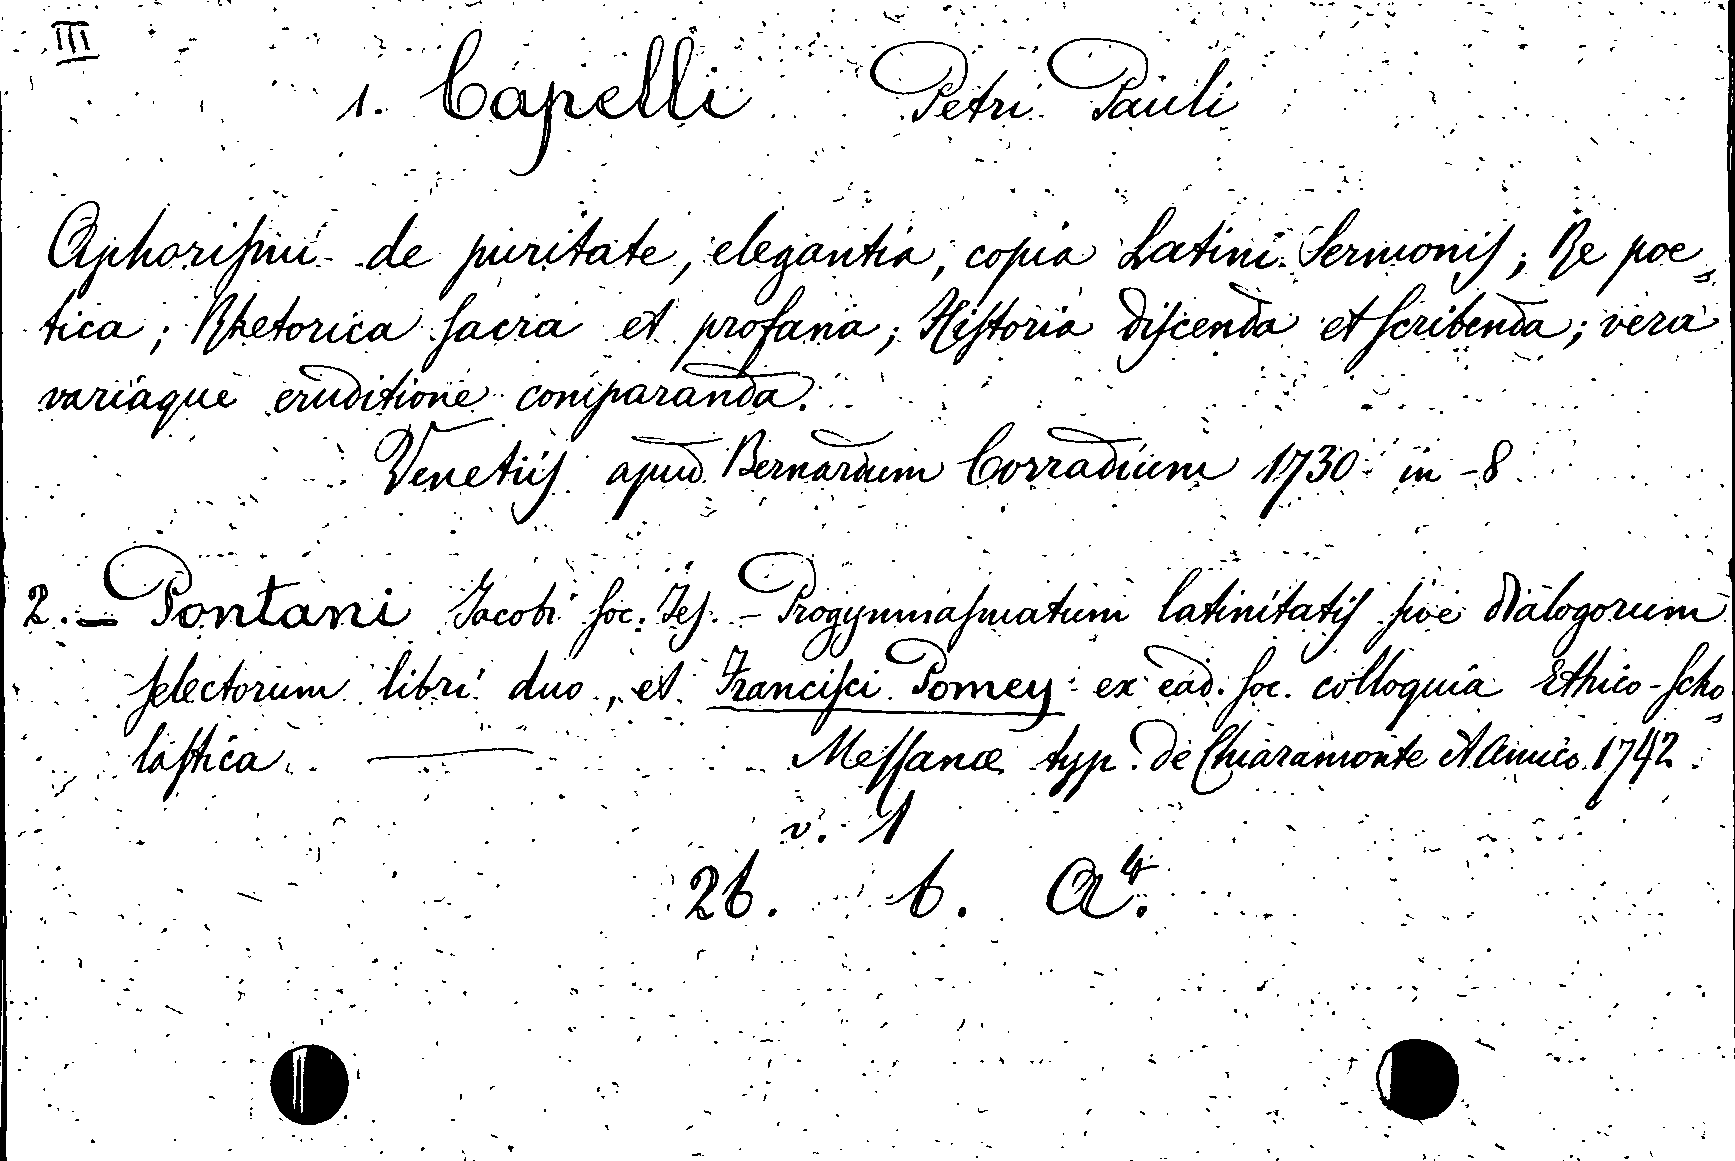 III
1. Capelli Petri Pauli
Aphorismi de puritate, elegantia, copia Latini Sermonis; Re poe„
tica; Rhetorica sacra et profana; Historia discenda et scribenda; vera
variaque eruditione comparanda.
Venetiis apud Bernardum Corradium 1730 in-8
2. - Pontani Jacobi Soc. Jes. - Progymnasmatum latinitatis sive dialogorum
selectorum libri duo, et Francisci Pomey ex ead. soc. colloquia Ethico-scho„
lastica — Messanæ typ. de Chiaramonte et Amico 1742.
v. 1
26. 6. A⁴.